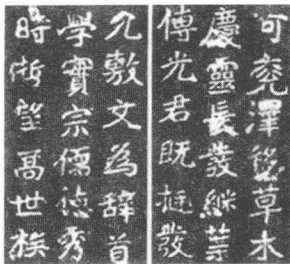 可堯澤草木
慶靈長發繼葉
傳光君既挺發
凡敷文為辭首
學實宗儒德秀
時望高世族